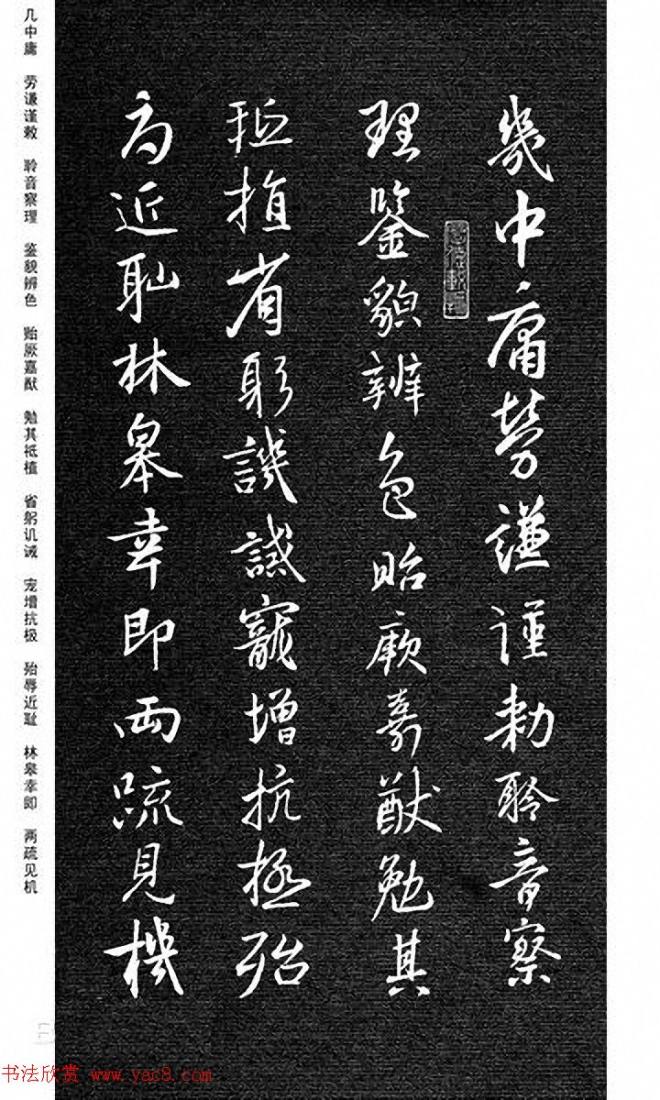 幾中庸勞謙謹勅聆音察
理鑒貌辨色貽厥嘉猷勉其
祗植省躬譏誡寵增抗極殆
辱近恥林皋幸即兩疏見機
几中庸 劳谦谨敕 聆音察理 鉴貌辨色 贻厥嘉猷 勉其祗植 省躬讥诫 宠增抗极 殆辱近耻 林皋幸即 两疏见机
书法欣赏 www.yac8.com